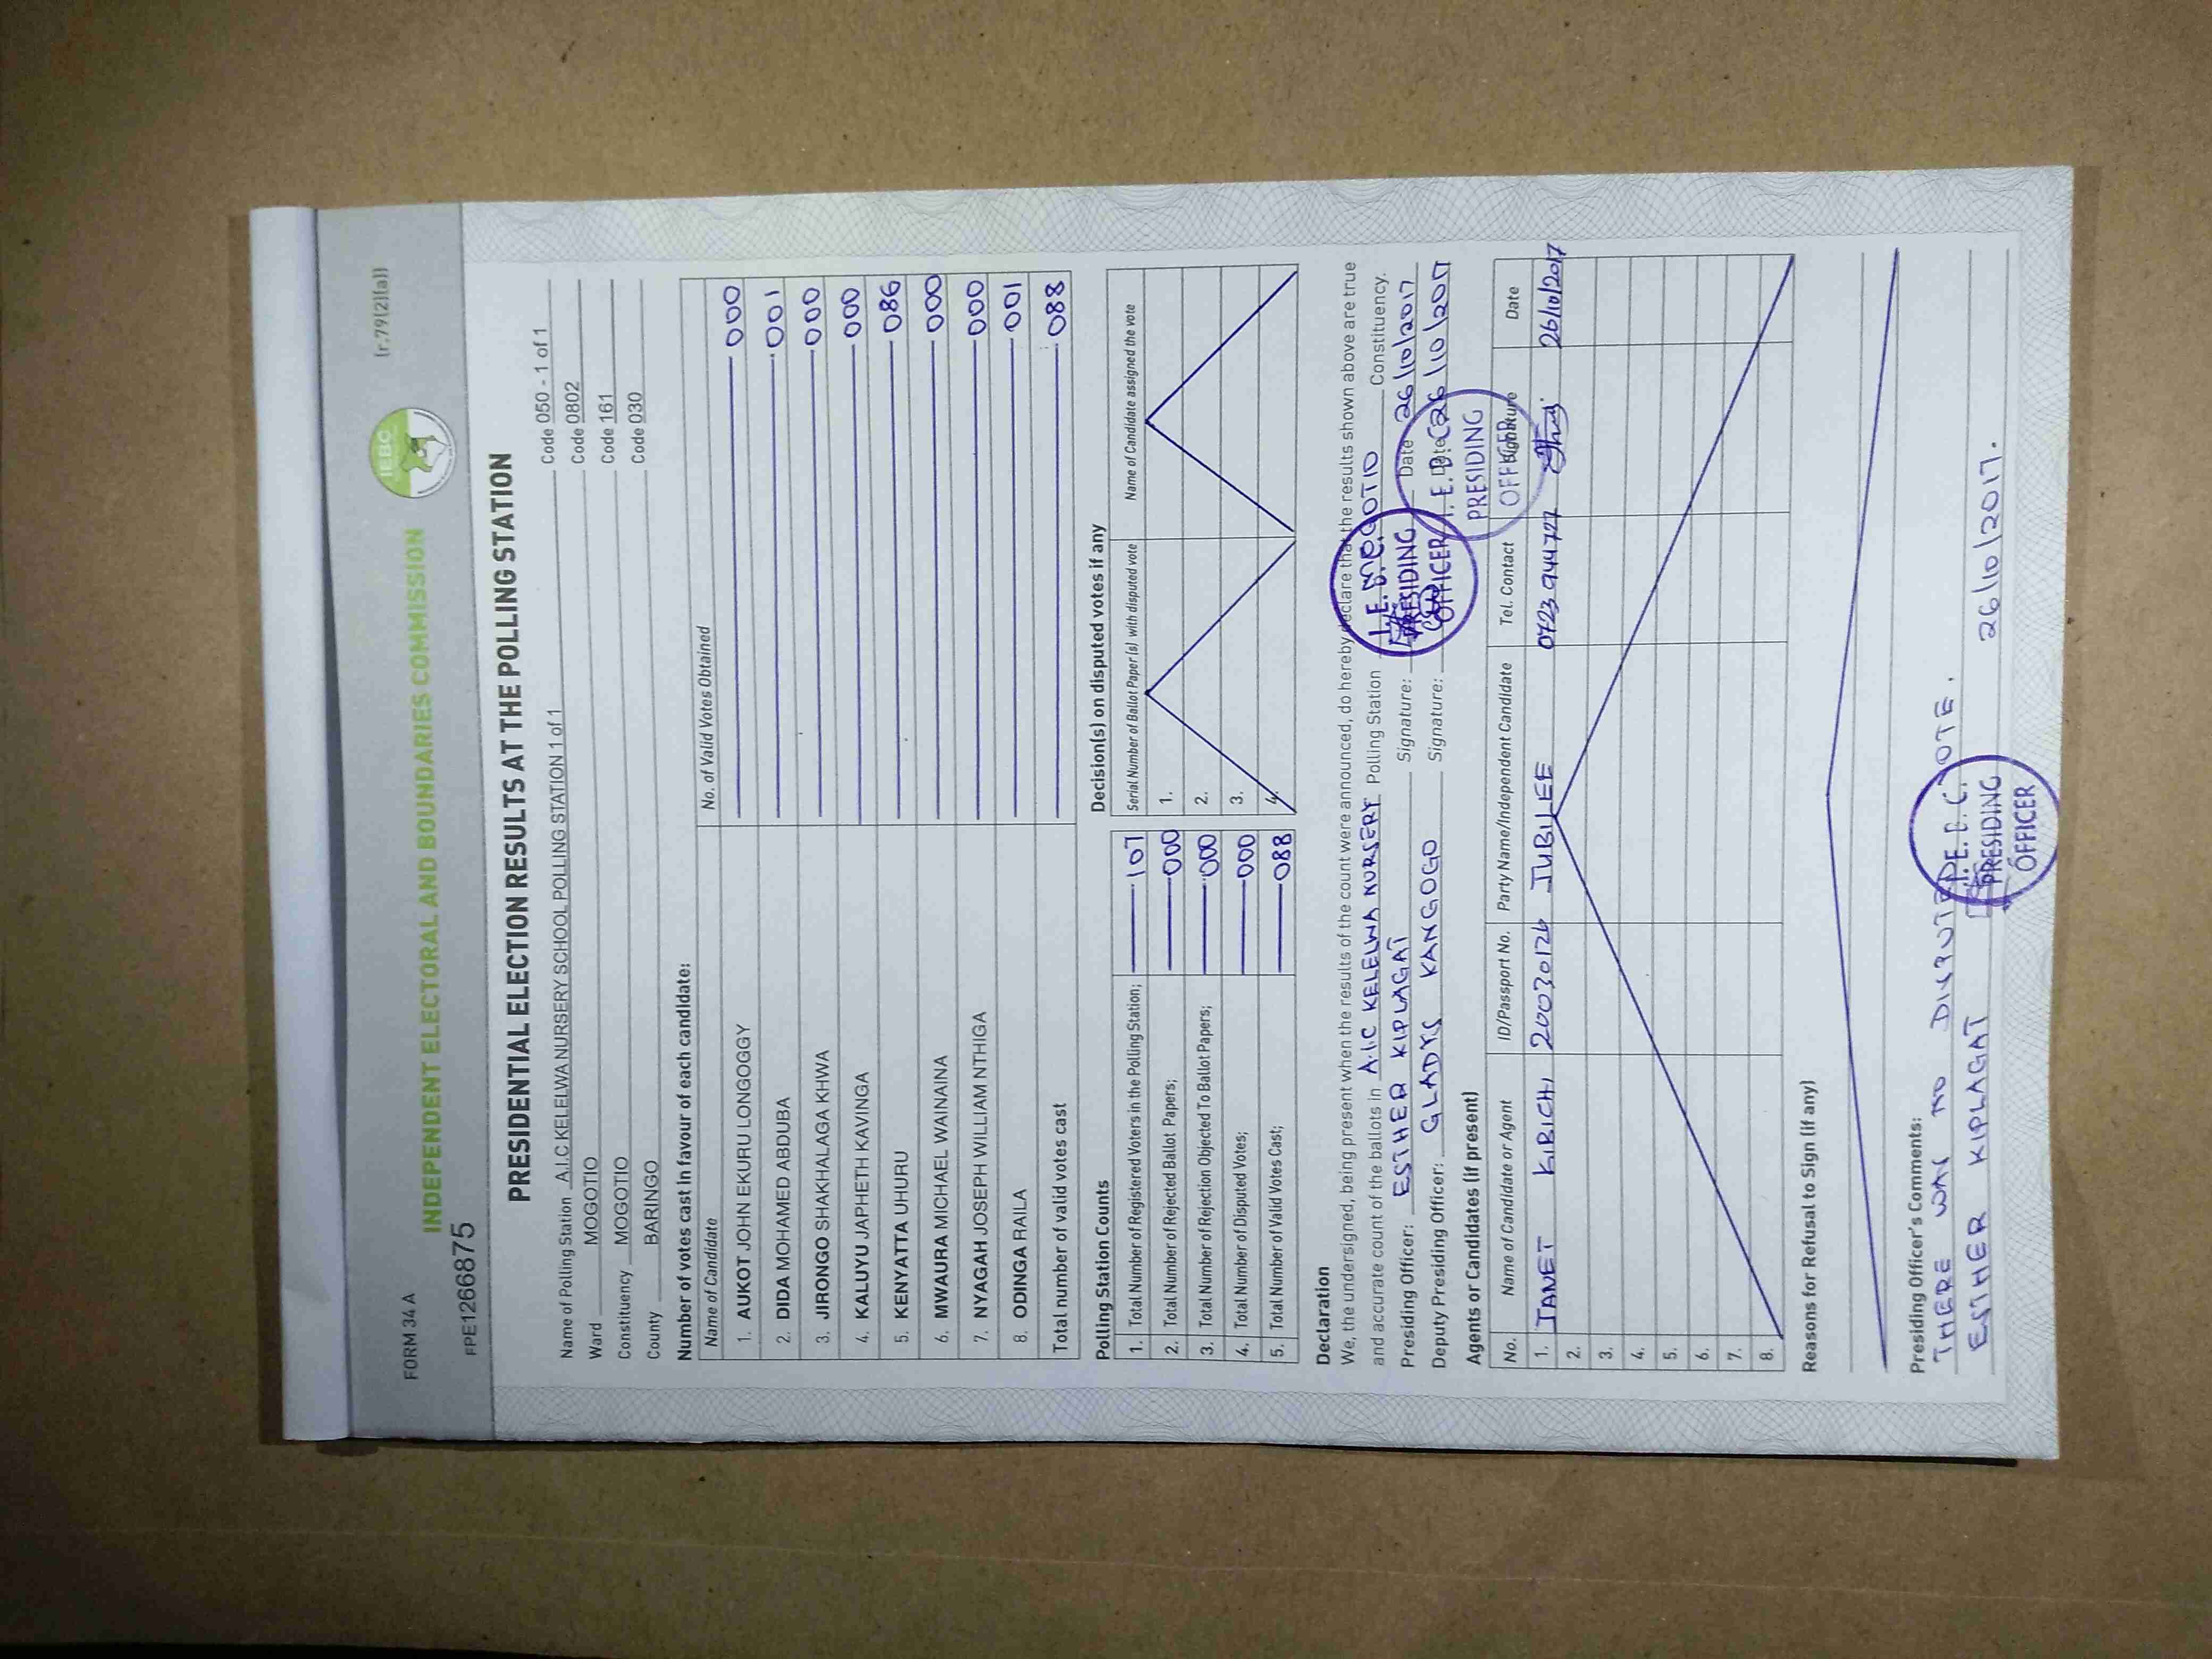 FORM 34 A
(r.79(2)(a))
IEBC
INDEPENDENT ELECTORAL AND BOUNDARIES COMMISSION
FPE1266875
PRESIDENTIAL ELECTION RESULTS AT THE POLLING STATION
Name of Polling Station A.I.C KELELWA NURSERY SCHOOL POLLING STATION 1 of 1 Code 050 - 1 of 1
Ward MOGOTIO Code 0802
Constituency MOGOTIO Code 161
County BARINGO Code 030
Number of votes cast in favour of each candidate:
Name of Candidate No. of Valid Votes Obtained
1. AUKOT JOHN EKURU LONGOGGY 000
2. DIDA MOHAMED ABDUBA 001
3. JIRONGO SHAKHALAGA KHWA 000
4. KALUYU JAPHETH KAVINGA 000
5. KENYATTA UHURU 086
6. MWAURA MICHAEL WAINAINA 000
7. NYAGAH JOSEPH WILLIAM NTHIGA 000
8. ODINGA RAILA 001
Total number of valid votes cast 088
Polling Station Counts
1. Total Number of Registered Voters in the Polling Station; 107
2. Total Number of Rejected Ballot Papers; 000
3. Total Number of Rejection Objected To Ballot Papers; 000
4. Total Number of Disputed Votes; 000
5. Total Number of Valid Votes Cast; 088
Decision(s) on disputed votes if any
Serial Number of Ballot Paper(s) with disputed vote Name of Candidate assigned the vote
1.
2.
3.
4.
Declaration
We, the undersigned, being present when the results of the count were announced, do hereby declare that the results shown above are true
and accurate count of the ballots in A.I.C KELELWA NURSERY Polling Station MOGOTIO Constituency.
Presiding Officer: ESTHER KIPLAGAT Signature: Date 26/10/2017
Deputy Presiding Officer: GLADYS KANGOGO Signature: Date 26/10/2017
I.E.B.C.
PRESIDING
OFFICER
I.E.B.C.
PRESIDING
OFFICER
Agents or Candidates (if present)
No. Name of Candidate or Agent ID/Passport No. Party Name/Independent Candidate Tel. Contact Signature Date
1. JANET KIBICHI JUBILEE 0723944727 26/10/2017
2.
3.
4.
5.
6.
7.
8.
Reasons for Refusal to Sign (if any)
Presiding Officer's Comments:
THERE WAS NO DISPUTED VOTE.
ESTHER KIPLAGAT 26/10/2017.
I.E.B.C.
PRESIDING
OFFICER